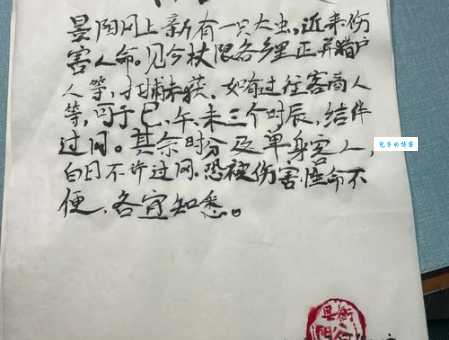 景阳冈上新有一只大虫,近来伤
害人命。见今杖限各乡里正并猎户
人等,打捕未获。如有过往客商人
等,可于巳、午、未三个时辰,结伴
过冈。其余时分及单身客人,
白日不许过冈。恐被伤害性命不
便,各宜知悉。
县衙